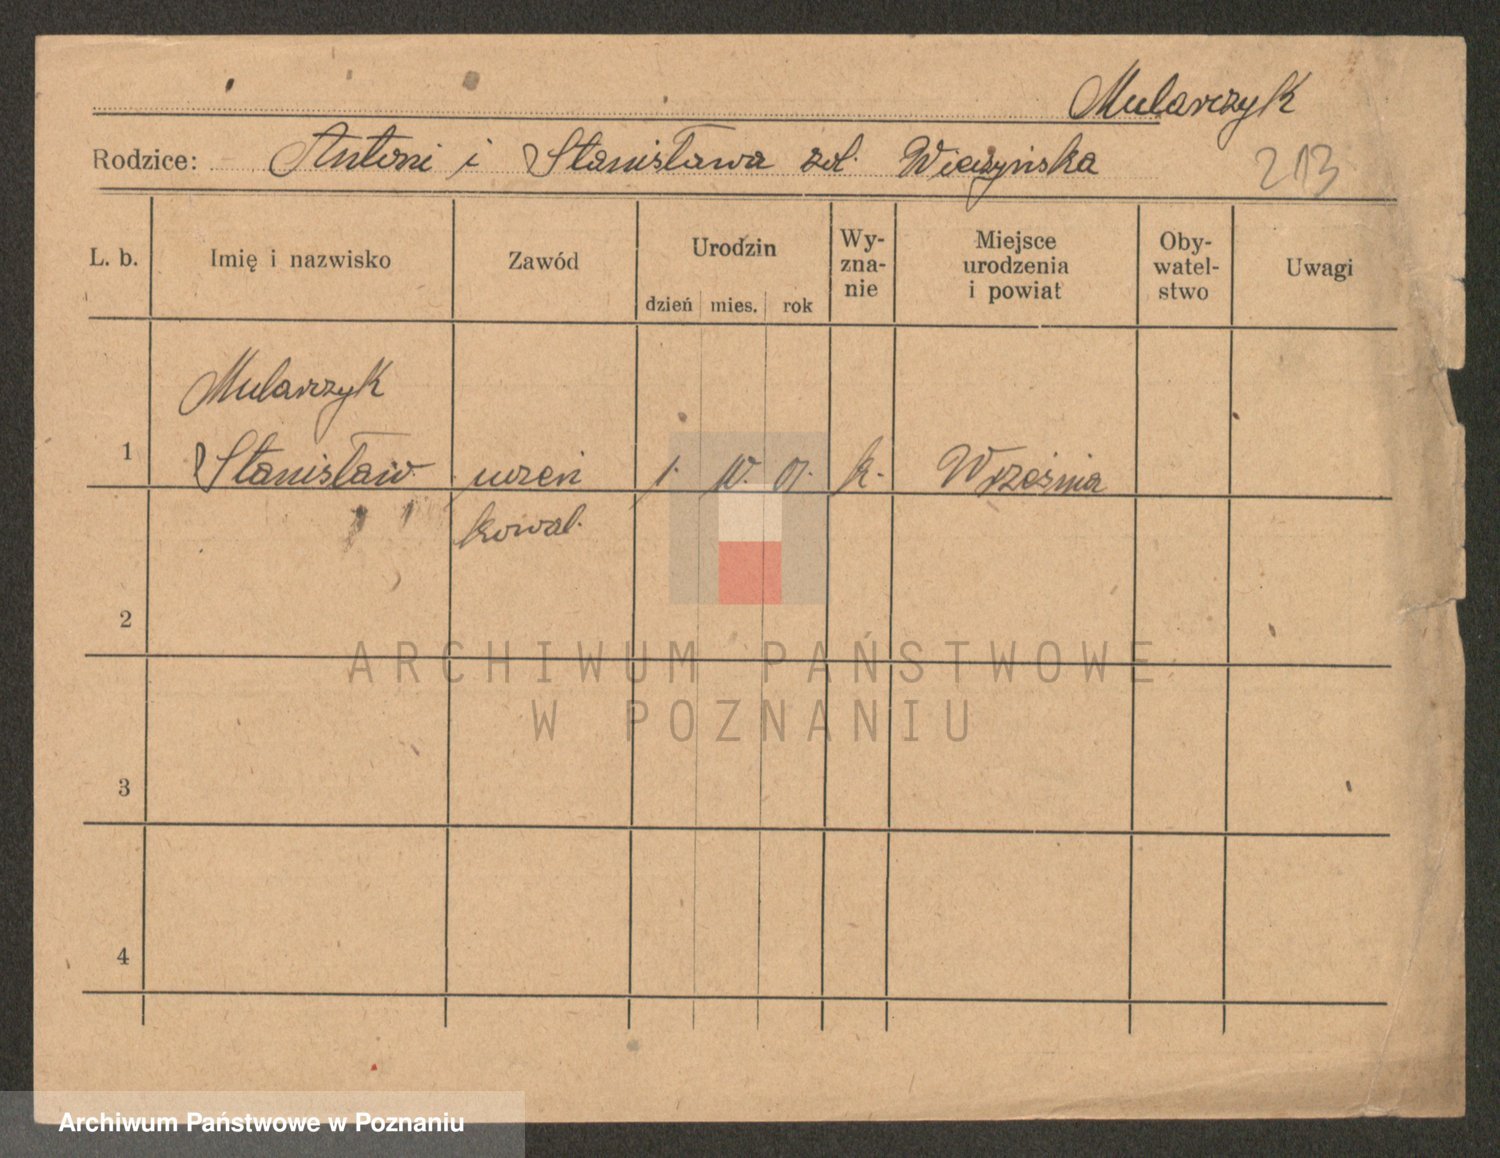 Mularczyk
Rodzice: Antoni i Stanisława zd.
213
L. b. Imię i nazwisko Zawód Urodzin dzień mies. rok Wy-zna-nie Miejsce urodzenia i powiat Oby-watel-stwo Uwagi
Mularczyk
1 Stanisław uczeń 1. IV. 07. k. Września
kowal.
2
3
4
ARCHIWUM PAŃSTWOWE
W POZNANIU
Archiwum Państwowe w Poznaniu